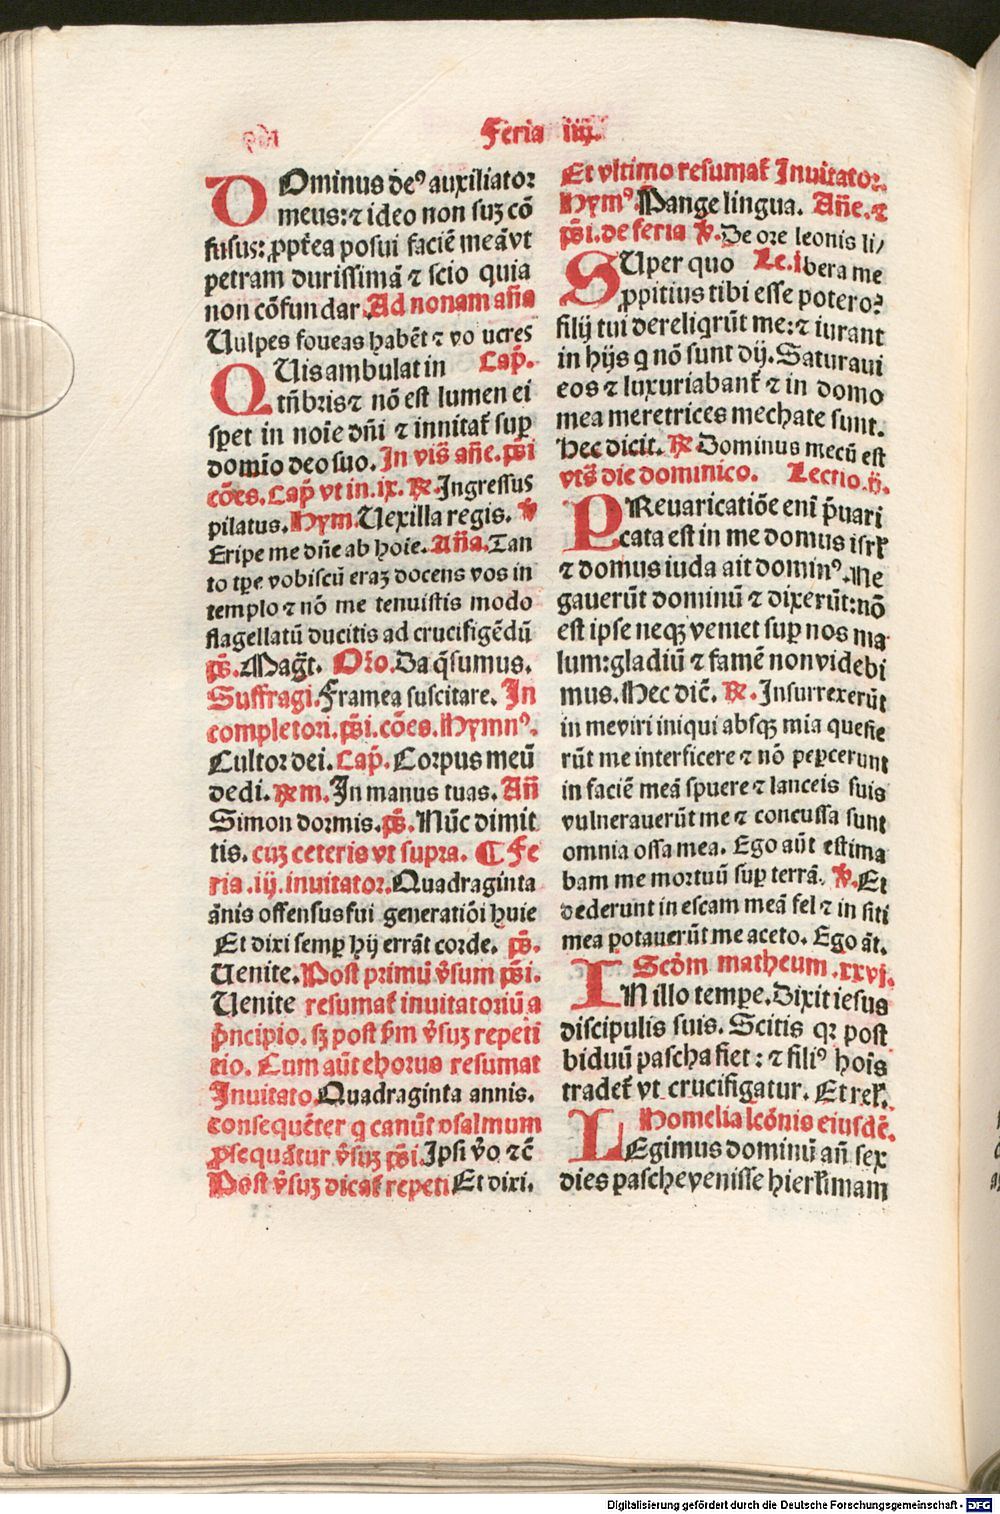 Feria iiij.
DOminus deꝰ auxiliator
meus: ⁊ ideo non suꝫ cō
fusus: ꝓpt̄ea posui faciē meā vt
petram durissimā ⁊ scio quia
non cōfundar. Ad nonam añа
Uulpes foueas habēt ⁊ vo ucres
QUis ambulat in Cap̄.
tñbris ⁊ nō est lumen ei
sꝑet in noīe dñi ⁊ innitat̄ suꝑ
domīo deo suo. In vis̄ añe. ps̄i
cōes. Cap̄ vt in .ix. ℟. Ingressus
pilatus. Hym. Vexilla regis. ℣
Eripe me dñe ab hoīe. Aña. Tan
to tꝑe vobiscū eraꝫ docens vos in
templo ⁊ nō me tenuistis modo
flagellatū ducitis ad crucifigēdū
ps̄. Mag̃t. Oŕo. Da q̄sumus.
Suffragi. Framea suscitare. In
completori. ps̄i. cōes. Hymnꝰ.
Cultor dei. Cap̄. Corpus meū
dedi. ℟m. In manus tuas. Añ
Simon dormis. ps̄. Nūc dimit
tis. cuꝫ ceteris vt supra. ¶ Fe
ria .iij. inuitator. Quadraginta
ānis offensus fui generatiōi huic
Et dixi semꝑ hij errāt corde. ps̄.
Uenite. Post primū v̄sum ps̄i.
Uenite resumat̄ inuitatoriū a
p̄ncipio. sꝫ post s̄m v̄suꝫ repeti
tio. Cum aūt chorus resumat
Inuitato. Quadraginta annis.
consequēter q canūt psalmum
ꝓsequātur v̄suꝫ ps̄i. Ipsi v̄o ⁊c̄
Post v̄suꝫ dicat̄ repeti Et dixi.
Et vltimo resumat̄ Inuitator.
Hymꝰ. Pange lingua. Añe. ⁊
ps̄i. de feria ℣. De ore leonis li/
SUper quo Le. i bera me
ꝓpitius tibi esse potero?
filij tui dereliqrūt me: ⁊ iurant
in hijs q nō sunt dij. Saturaui
eos ⁊ luxuriabant̄ ⁊ in domo
mea meretrices mechate sunt.
Hec dicit. ℟ Dominus mecū est
vts̄ die dominico. Lectio .ij.
PReuaricatiōe enī p̄uari
cata est in me domus isrł
⁊ domus iuda ait dominꝰ. Ne
gauerūt dominū ⁊ dixerūt: nō
est ipse neqꝫ veniet suꝑ nos ma
lum: gladiū ⁊ famē non videbi
mus. Hec dic̄. ℟. Insurrexerūt
in me viri iniqui absqꝫ mia quesie
rūt me interficere ⁊ nō peꝑcerunt
in faciē meā spuere ⁊ lanceis suis
vulnerauerūt me ⁊ concussa sunt
omnia ossa mea. Ego aūt estima
bam me mortuū suꝑ terrā. ℣. Et
dederunt in escam meā fel ⁊ in siti
mea potauerūt me aceto. Ego āt.
Scd̄m matheum .xxvi.
IN illo tempe. Dixit iesus
discipulis suis. Scitis qꝛ post
biduū pascha fiet: ⁊ filiꝰ hoīs
tradet̄ vt crucifigatur. Et rel̄.
Homelia leōnis eiusdē.
LEgimus dominū añ sex
dies pasche venisse hierłimam
Digitalisierung gefördert durch die Deutsche Forschungsgemeinschaft - DFG